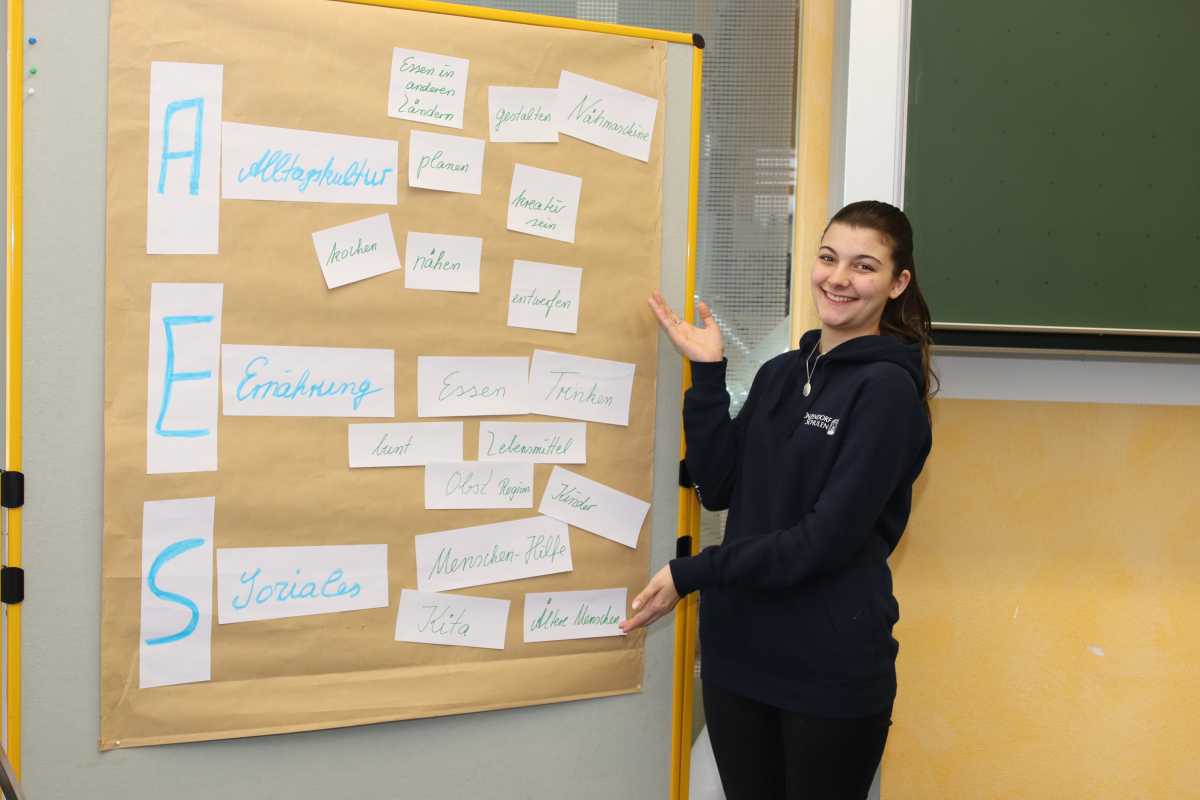 A
Alltagskultur
Essen in
anderen
Ländern
gestalten
Nähmaschine
planen
kreativ
sein
kochen
nähen
entwerfen
E
Ernährung
Essen
Trinken
bunt
Lebensmittel
Obst Region
Kinder
S
Soziales
Menschen-Hilfe
Kita
Ältere Menschen
NZENDORF
SCHULEN